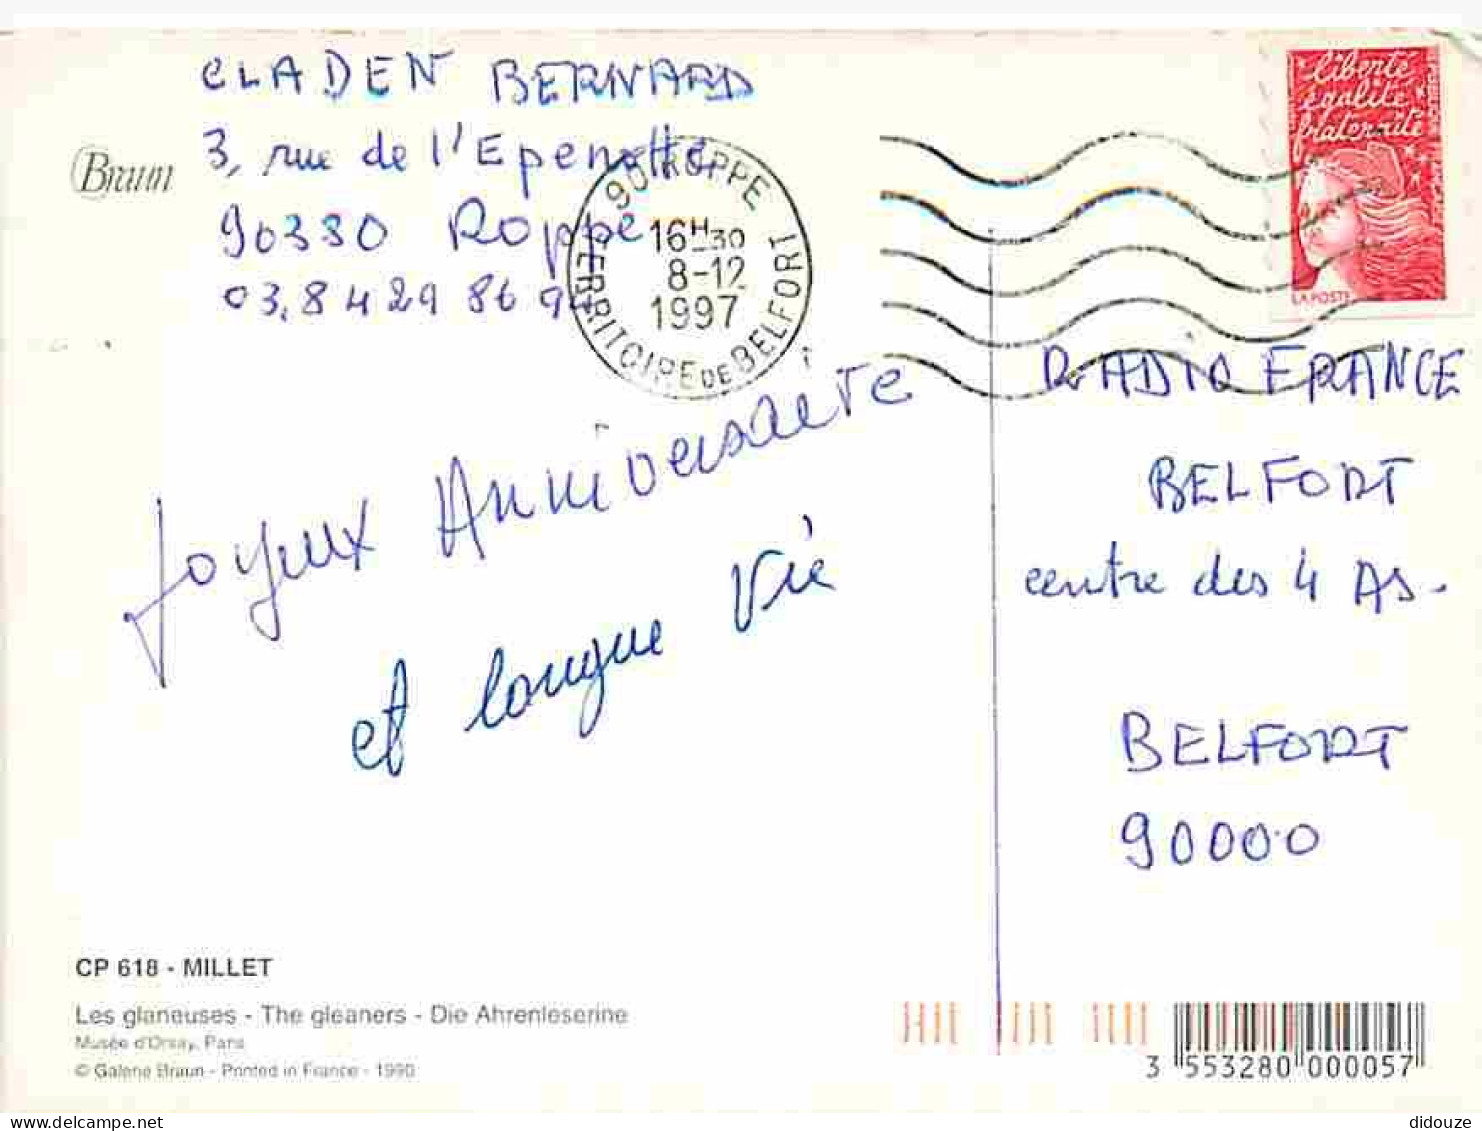 CLADEN BERNARD
3, rue de l'Epenotte
90380 Roppe
03.84 29 86 94
Braun
90 ROPPE
16H30
8-12
1997
TERRITOIRE DE BELFORT
liberté
égalité
fraternité
LA POSTE
Joyeux Anniversaire
et longue Vie
RADIO FRANCE
BELFORT
centre des 4 As.
BELFORT
90000
CP 618 - MILLET
Les glaneuses - The gleaners - Die Ahrenleserine
Musée d'Orsay, Paris
© Galerie Braun - Printed in France - 1990
3 553280 000057
delcampe.net
didouze